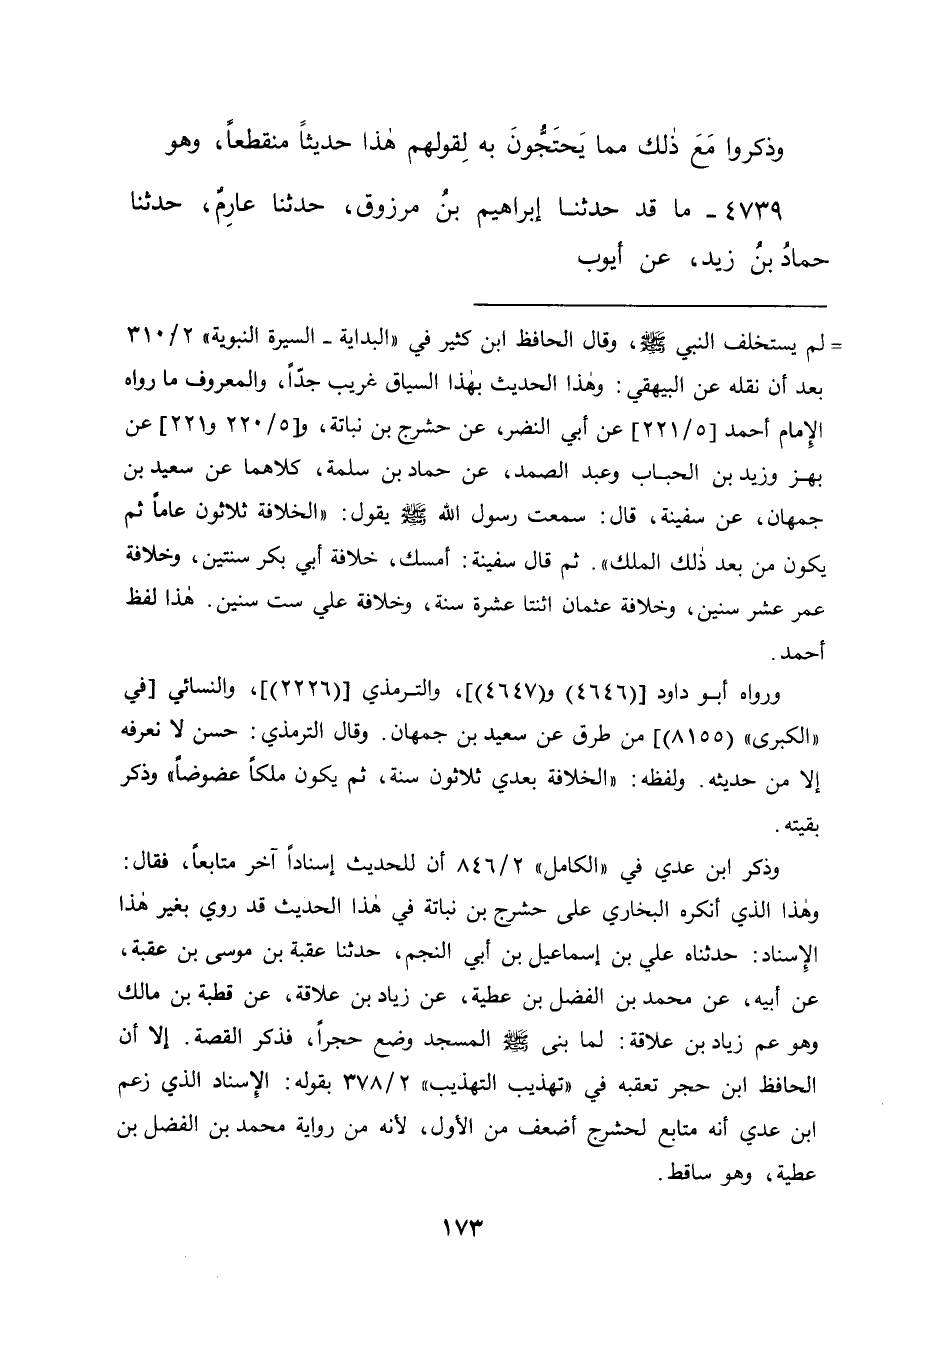 وذكروا مَعَ ذٰلك مما يَحتَجُّونَ به لِقولهم هٰذا حديثاً منقطعاً، وهو
٤٧٣٩ ـ ما قد حدثنا إبراهيم بنُ مرزوق، حدثنا عارِمٌ، حدثنا
حمادُ بنُ زيد، عن أيوب
= لم يستخلف النبي ﷺ، وقال الحافظ ابن كثير في «البداية ـ السيرة النبوية» ٣١٠/٢
بعد أن نقله عن البيهقي: وهٰذا الحديث بهٰذا السياق غريب جدّاً، والمعروف ما رواه
الإمام أحمد [٢٢١/٥] عن أبي النضر، عن حشرج بن نباتة، و[٢٢٠/٥ و٢٢١] عن
بهز وزيد بن الحباب وعبد الصمد، عن حماد بن سلمة، كلاهما عن سعيد بن
جمهان، عن سفينة، قال: سمعت رسول الله ﷺ يقول: «الخلافة ثلاثون عاماً ثم
يكون من بعد ذٰلك الملك». ثم قال سفينة: أمسك، خلافة أبي بكر سنتين، وخلافة
عمر عشر سنين، وخلافة عثمان اثنتا عشرة سنة، وخلافة علي ست سنين. هٰذا لفظ
أحمد.
ورواه أبو داود [(٤٦٤٦) و(٤٦٤٧)]، والترمذي [(٢٢٢٦)]، والنسائي [في
«الكبرى» (٨١٥٥)] من طرق عن سعيد بن جمهان. وقال الترمذي: حسن لا نعرفه
إلا من حديثه. ولفظه: «الخلافة بعدي ثلاثون سنة، ثم يكون ملكاً عضوضاً» وذكر
بقيته.
وذكر ابن عدي في «الكامل» ٨٤٦/٢ أن للحديث إسناداً آخر متابعاً، فقال:
وهٰذا الذي أنكره البخاري على حشرج بن نباتة في هٰذا الحديث قد روي بغير هٰذا
الإسناد: حدثناه علي بن إسماعيل بن أبي النجم، حدثنا عقبة بن موسى بن عقبة،
عن أبيه، عن محمد بن الفضل بن عطية، عن زياد بن علاقة، عن قطبة بن مالك
وهو عم زياد بن علاقة: لما بنى ﷺ المسجد وضع حجراً، فذكر القصة. إلا أن
الحافظ ابن حجر تعقبه في «تهذيب التهذيب» ٣٧٨/٢ بقوله: الإسناد الذي زعم
ابن عدي أنه متابع لحشرج أضعف من الأول، لأنه من رواية محمد بن الفضل بن
عطية، وهو ساقط.
١٧٣